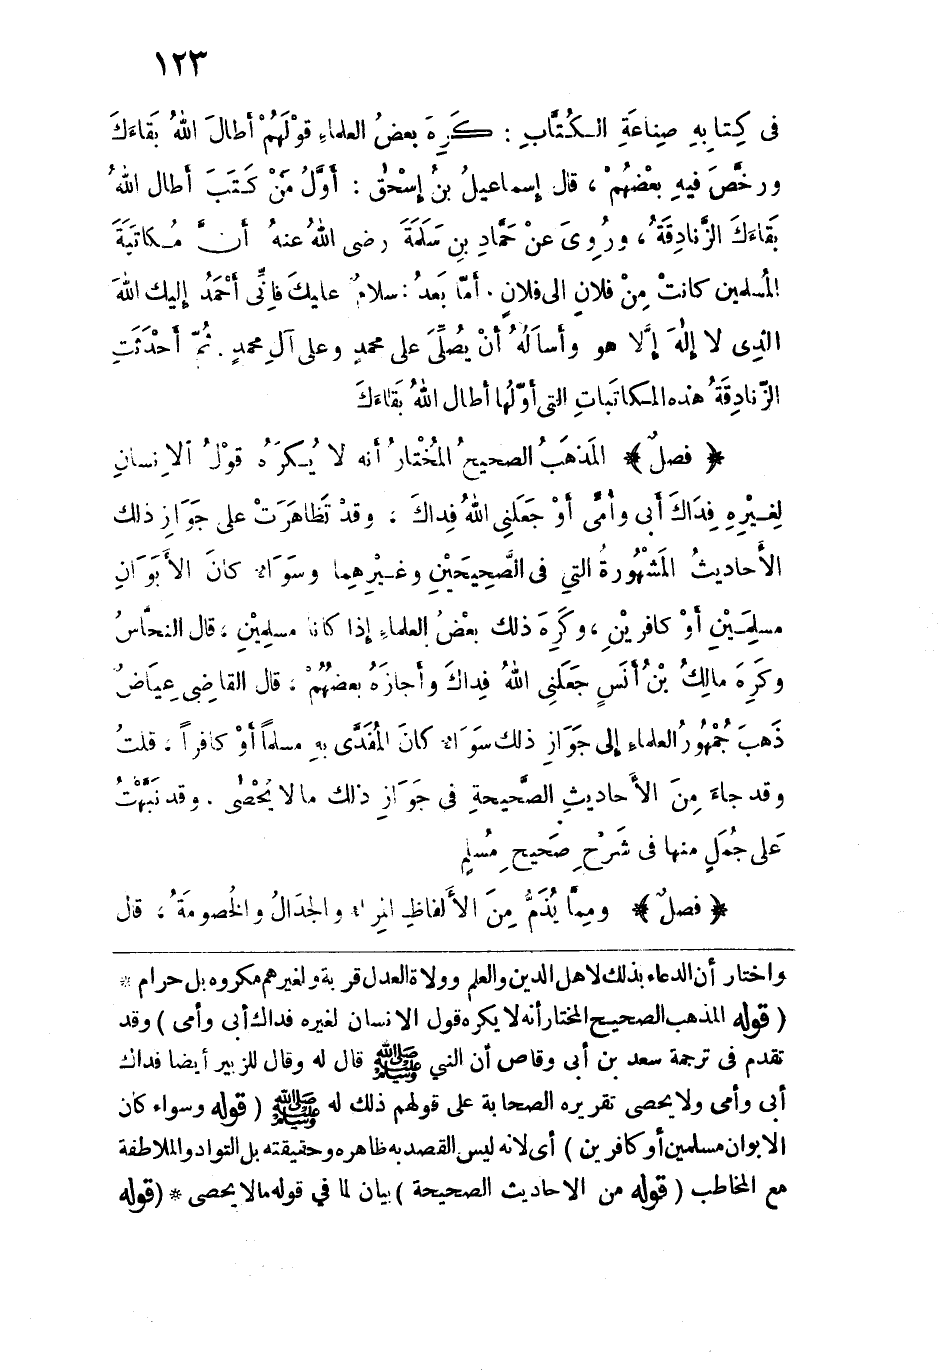 ١٢٣
فى كِتابِهِ صِناعَةِ الـكُتَّابِ : كَرِهَ بعضُ العلماءِ قَوْلَهُمْ أطالَ اللهُ بَقاءَكَ
ورخَّصَ فيهِ بعْضُهُمْ ، قال إسماعيلُ بنُ إسْحٰق : أوَّلُ مَنْ كَتَبَ أطال اللهُ
بَقاءَكَ الزَّنادِقَةُ ، ورُوِىَ عنْ حَمَّادِ بنِ سَلَمَةَ رضى اللهُ عنهُ أنَّ مُـكاتَبَةَ
المُسلمين كانتْ مِنْ فلانٍ الى فلانٍ . أمّا بَعدُ : سلامٌ عليكَ فانِّى أحْمَدُ إليك اللهَ
الذِى لا إلٰهَ إلَّا هو وأسألُهُ أنْ يُصلِّىَ على محمدٍ وعلى آلِ محمدٍ . ثُمّ أحْدَثَتِ
الزّنادِقَةُ هذه المـكاتَباتِ التى أوّلُها أطال اللهُ بَقاءَكَ
﴿ فصلٌ ﴾ المَذهَبُ الصحيحُ المُخْتارُ أنه لا يُـكرَهُ قوْلُ الإنسانِ
لِغيْرِهِ فِدَاكَ أبى وأُمِّى أوْ جَعَلَنِى اللهُ فِداكَ ، وقدْ تَظاهَرَتْ على جَوَازِ ذلك
الأحاديثُ المَشْهُورةُ التي فى الصَّحِيحَيْنِ وغيْرِهِما وسَوَاءٌ كانَ الأبَوَانِ
مسلِمَيْنِ أوْ كافرَيْنِ ، وكَرِهَ ذلك بعْضُ العلماءِ إذا كانا مسلِمَيْنِ ، قال النحَّاسُ
وكَرِهَ مالِكُ بْنُ أنَسٍ جَعَلَنِى اللهُ فِداكَ وأجازَهُ بعضُهُمْ ، قال القاضِى عِيَاضٌ
ذَهبَ جُمْهُورُ العلماءِ إلى جَوَازِ ذلك سَوَاءٌ كانَ المُفَدَّى بِهِ مسلماً أوْ كافراً ، قلتُ
وقد جاءَ مِنَ الأحاديثِ الصَّحيحةِ فى جَوَازِ ذٰلك مالا يُحْصٰى . وقد نَبَّهْتُ
عَلى جُمَلٍ منها فى شَرْحِ صَحيحِ مُسلِمٍ
﴿ فصلٌ ﴾ ومِمَّا يُذَمُّ مِنَ الألفاظِ المِرَاءُ والجِدَالُ والخُصومَةُ ، قال
واختار أن الدعاء بذلك لاهل الدين والعلم وولاة العدل قربة ولغيرهم مكروه بل حرام *
( قوله المذهب الصحيح المختار أنه لا يكره قول الانسان لغيره فداك أبى وأمى ) وقد
تقدم فى ترجمة سعد بن أبى وقاص أن النبي ﷺ قال له وقال للزبير أيضا فداك
أبى وأمى ولا يحصى تقريره الصحابة على قولهم ذلك له ﷺ ( قوله وسواء كان
الابوان مسلمين أو كافرين ) أى لانه ليس القصد به ظاهره وحقيقته بل التواد والملاطفة
مع المخاطب ( قوله من الاحاديث الصحيحة ) بيان لما في قوله مالا يحصى * ( قوله